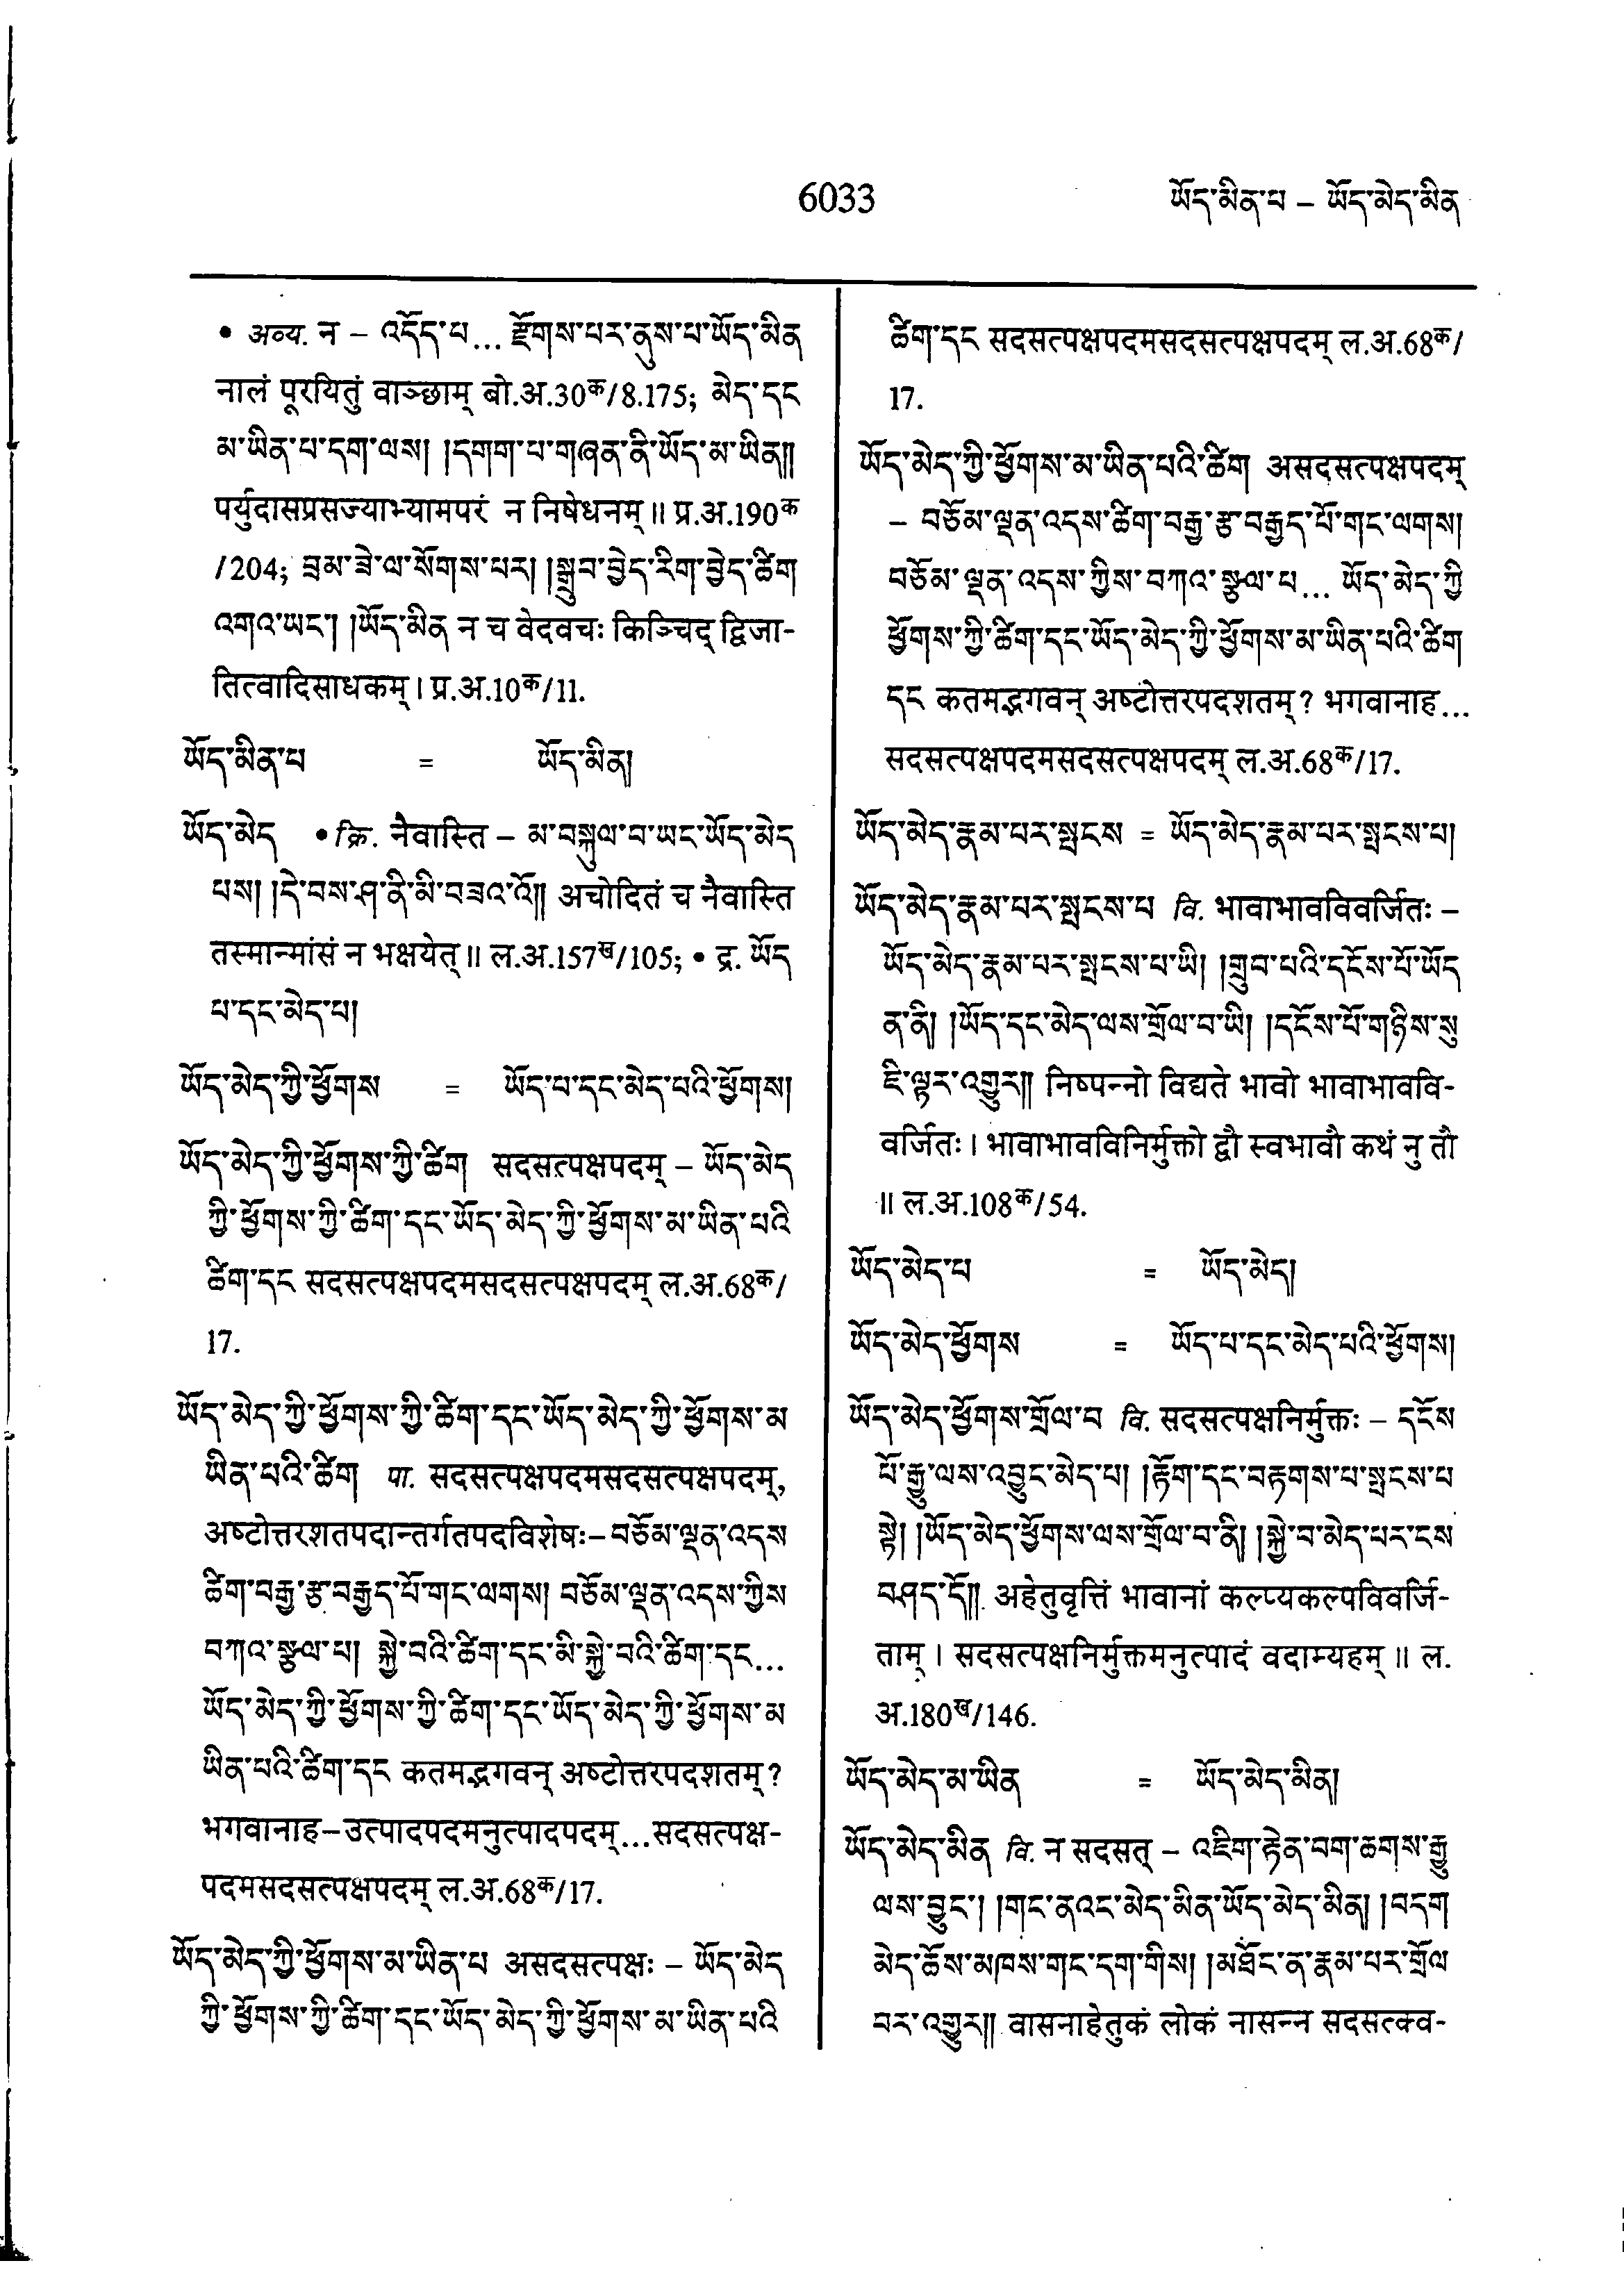 6033
ཡོད་མིན་པ – ཡོད་མེད་མིན
• अव्य. न – འདོད་པ... རྫོགས་པར་ནུས་པ་ཡོད་མིན
नालं पूरयितुं वाञ्छाम् बो.अ.30क/8.175; མེད་དང
མ་ཡིན་པ་དག་ལས། །དགག་པ་གཞན་ནི་ཡོད་མ་ཡིན།།
पर्युदासप्रसज्याभ्यामपरं न निषेधनम्॥ प्र.अ.190क
/204; བྲམ་ཟེ་ལ་སོགས་པར། །སྒྲུབ་བྱེད་རིག་བྱེད་ཚིག
འགའ་ཡང་། །ཡོད་མིན न च वेदवचः किञ्चिद् द्विजा-
तित्वादिसाधकम्। प्र.अ.10क/11.
ཡོད་མིན་པ = ཡོད་མིན།
ཡོད་མེད • क्रि. नैवास्ति – མ་བསྐུལ་བ་ཡང་ཡོད་མེད
པས། །དེ་བས་ཤ་ནི་མི་བཟའ་འོ།། अचोदितं च नैवास्ति
तस्मान्मांसं न भक्षयेत्॥ ल.अ.157ख/105; • द्र. ཡོད
པ་དང་མེད་པ།
ཡོད་མེད་ཀྱི་ཕྱོགས = ཡོད་པ་དང་མེད་པའི་ཕྱོགས།
ཡོད་མེད་ཀྱི་ཕྱོགས་ཀྱི་ཚིག सदसत्पक्षपदम् – ཡོད་མེད
ཀྱི་ཕྱོགས་ཀྱི་ཚིག་དང་ཡོད་མེད་ཀྱི་ཕྱོགས་མ་ཡིན་པའི
ཚིག་དང सदसत्पक्षपदमसदसत्पक्षपदम् ल.अ.68क/
17.
ཡོད་མེད་ཀྱི་ཕྱོགས་ཀྱི་ཚིག་དང་ཡོད་མེད་ཀྱི་ཕྱོགས་མ
ཡིན་པའི་ཚིག पा. सदसत्पक्षपदमसदसत्पक्षपदम्,
अष्टोत्तरशतपदान्तर्गतपदविशेषः– བཅོམ་ལྡན་འདས
ཚིག་བརྒྱ་རྩ་བརྒྱད་པོ་གང་ལགས། བཅོམ་ལྡན་འདས་ཀྱིས
བཀའ་སྩལ་པ། སྐྱེ་བའི་ཚིག་དང་མི་སྐྱེ་བའི་ཚིག་དང...
ཡོད་མེད་ཀྱི་ཕྱོགས་ཀྱི་ཚིག་དང་ཡོད་མེད་ཀྱི་ཕྱོགས་མ
ཡིན་པའི་ཚིག་དང कतमद्भगवन् अष्टोत्तरपदशतम्?
भगवानाह–उत्पादपदमनुत्पादपदम्...सदसत्पक्ष-
पदमसदसत्पक्षपदम् ल.अ.68क/17.
ཡོད་མེད་ཀྱི་ཕྱོགས་མ་ཡིན་པ असदसत्पक्षः – ཡོད་མེད
ཀྱི་ཕྱོགས་ཀྱི་ཚིག་དང་ཡོད་མེད་ཀྱི་ཕྱོགས་མ་ཡིན་པའི
ཚིག་དང सदसत्पक्षपदमसदसत्पक्षपदम् ल.अ.68क/
17.
ཡོད་མེད་ཀྱི་ཕྱོགས་མ་ཡིན་པའི་ཚིག असदसत्पक्षपदम्
– བཅོམ་ལྡན་འདས་ཚིག་བརྒྱ་རྩ་བརྒྱད་པོ་གང་ལགས།
བཅོམ་ལྡན་འདས་ཀྱིས་བཀའ་སྩལ་པ... ཡོད་མེད་ཀྱི
ཕྱོགས་ཀྱི་ཚིག་དང་ཡོད་མེད་ཀྱི་ཕྱོགས་མ་ཡིན་པའི་ཚིག
དང कतमद्भगवन् अष्टोत्तरपदशतम्? भगवानाह...
सदसत्पक्षपदमसदसत्पक्षपदम् ल.अ.68क/17.
ཡོད་མེད་རྣམ་པར་སྤངས = ཡོད་མེད་རྣམ་པར་སྤངས་པ།
ཡོད་མེད་རྣམ་པར་སྤངས་པ वि. भावाभावविवर्जितः –
ཡོད་མེད་རྣམ་པར་སྤངས་པ་ཡི། །གྲུབ་པའི་དངོས་པོ་ཡོད
ན་ནི། །ཡོད་དང་མེད་ལས་གྲོལ་བ་ཡི། །དངོས་པོ་གཉིས་སུ
ཇི་ལྟར་འགྱུར།། निष्पन्नो विद्यते भावो भावाभाववि-
वर्जितः। भावाभावविनिर्मुक्तो द्वौ स्वभावौ कथं नु तौ
॥ ल.अ.108क/54.
ཡོད་མེད་པ = ཡོད་མེད།
ཡོད་མེད་ཕྱོགས = ཡོད་པ་དང་མེད་པའི་ཕྱོགས།
ཡོད་མེད་ཕྱོགས་གྲོལ་བ वि. सदसत्पक्षनिर्मुक्तः – དངོས
པོ་རྒྱུ་ལས་འབྱུང་མེད་པ། །རྟོག་དང་བརྟགས་པ་སྤངས་པ
སྟེ། །ཡོད་མེད་ཕྱོགས་ལས་གྲོལ་བ་ནི། །སྐྱེ་བ་མེད་པར་ངས
བཤད་དོ།། अहेतुवृत्तिं भावानां कल्प्यकल्पविवर्जि-
ताम्। सदसत्पक्षनिर्मुक्तमनुत्पादं वदाम्यहम्॥ ल.
अ.180ख/146.
ཡོད་མེད་མ་ཡིན = ཡོད་མེད་མིན།
ཡོད་མེད་མིན वि. न सदसत् – འཇིག་རྟེན་བག་ཆགས་རྒྱུ
ལས་བྱུང་། །གང་ནའང་མེད་མིན་ཡོད་མེད་མིན། །བདག
མེད་ཆོས་མཁས་གང་དག་གིས། །མཐོང་ན་རྣམ་པར་གྲོལ
བར་འགྱུར།། वासनाहेतुकं लोकं नासन्न सदसत्क्व-